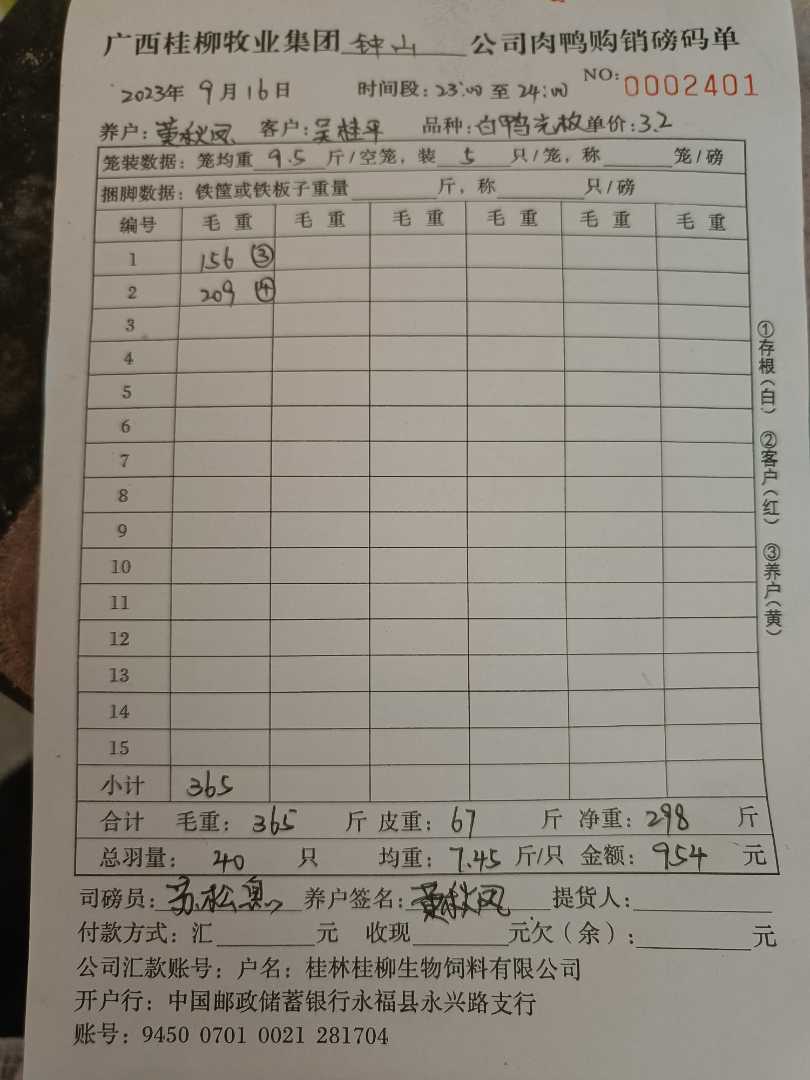 广西桂柳牧业集团 钟山 公司肉鸭购销磅码单
2023年 9月16日 时间段：23:00 至 24:00 NO: 0002401
养户：黄秋凤 客户：吴桂平 品种：白鸭 单价：3.2
笼装数据：笼均重 9.5 斤/空笼，装 5 只/笼，称 笼/磅
捆脚数据：铁筐或铁板子重量 斤，称 只/磅
编号 毛重 毛重 毛重 毛重 毛重 毛重
1 156 ③
2 209 ④
3
4
5
6
7
8
9
10
11
12
13
14
15
小计 365
合计 毛重：365 斤 皮重：67 斤 净重：298 斤
总羽量：40 只 均重：7.45 斤/只 金额：954 元
司磅员：苏松 养户签名：黄秋凤 提货人：
付款方式：汇 元 收现 元欠（余）： 元
公司汇款账号：户名：桂林桂柳生物饲料有限公司
开户行：中国邮政储蓄银行永福县永兴路支行
账号：9450 0701 0021 281704
①存根（白） ②客户（红） ③养户（黄）